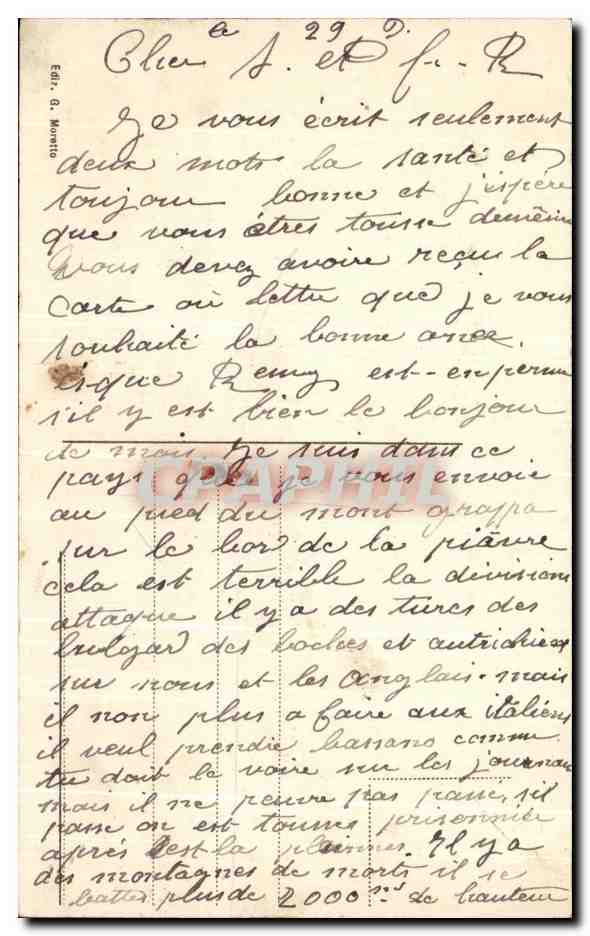 le 29 D.
Cher S. et fr. R
Je vous écrit seulement
deux mots la santé et
toujour bonne et j'espére
que vous étres tousse demême
Vous devez avoire reçus la
carte ou lettre que je vous
souhaité la bonne anee.
èsque Remy est-en perm
s'il y est bien le bonjour
de moi. Je suis dans ce
pays que je vous envoie
au pied du mont grappa
sur le bor de la piâvre
cela est terrible la division
attaque il y a des turcs des
bulgar des boches et autrichiens
sur nous et les Anglais. mais
il non plus a faire aux italiens
il veul prendre bassano comme
tu doit le voire sur les journaux
mais il ne peuve pas passé, s'il
passe on est tousse prisonnie
aprés c'est la plaine. Il y a
des montagnes de morts il se
battes plus de 2000 m de hauteur
Ediz. G. Moretto
CPAPHIL